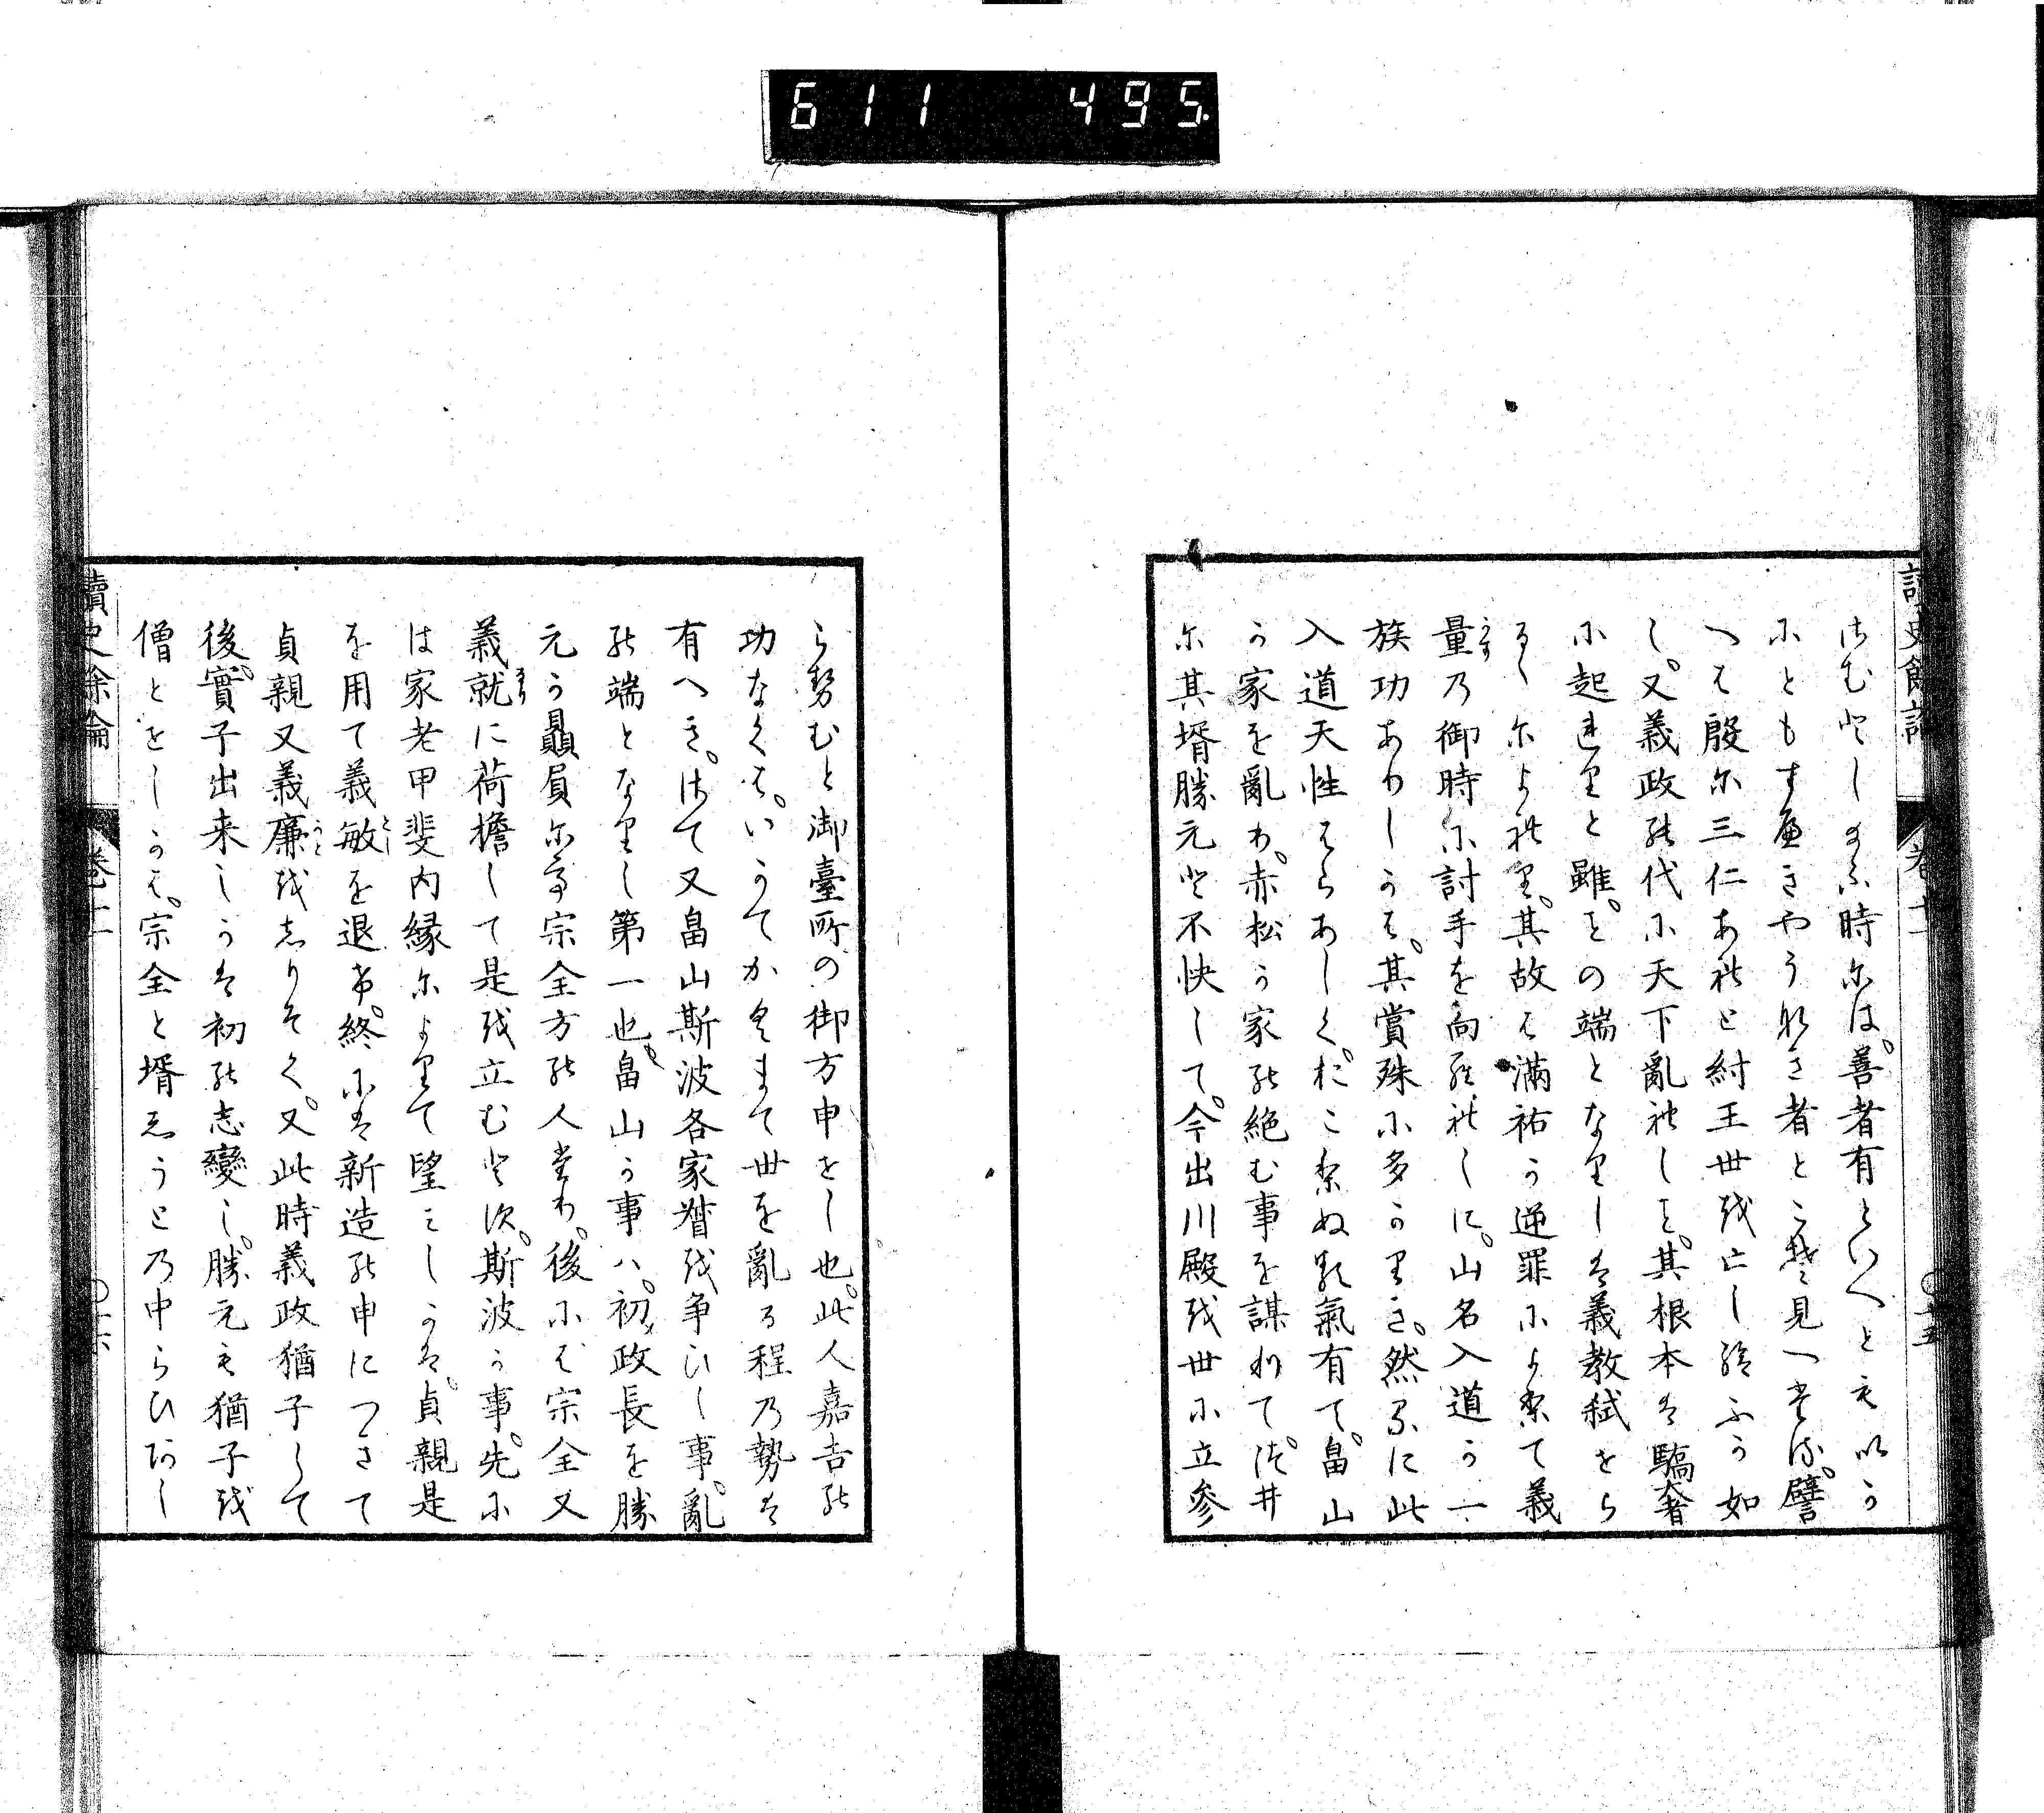 611 495
讀史餘論 卷十一 〇十五
はむとしまふ時には。善者有といへとも如か
にともすへきやうなき者とこそ見へたれ。譬
へは殷に三仁あれと紂王世を亡し給ふか如
し。又義政の代に天下亂れしを。其根本は驕奢
に起れりと雖。その端となりしは義教弑せら
るゝによれり。其故は滿祐か逆罪によりて義
量の御時に討手を向られしに。山名入道か一
族功ありしかは。其賞殊に多かりき。然るに此
入道天性はらあしく。おこりぬる氣有て。畠山
か家を亂り。赤松か家の絶む事を謀りて。つゐ
に其壻勝元と不快して。今出川殿を世に立參
らせむと御臺所の御方申せし也。此人嘉吉の
功なくは。いかてかくまて世を亂る程の勢は
有へき。はて又畠山斯波各家督を爭ひし事。亂
の端となりし第一也。畠山か事ハ。初政長を勝
元か贔屓に而宗全方の人たり。後には宗全又
義就に荷擔して是を立むとす。斯波か事。先に
は家老甲斐内縁によりて望みしかは。貞親是
を用て義敏を退け。終には新造の申につきて
貞親又義廉をしりそく。又此時義政猶子して
後。實子出来しかは初の志變し。勝元も猶子を
僧とせしかは。宗全と壻しうとの中らひあし
讀史餘論 卷十一 〇十六